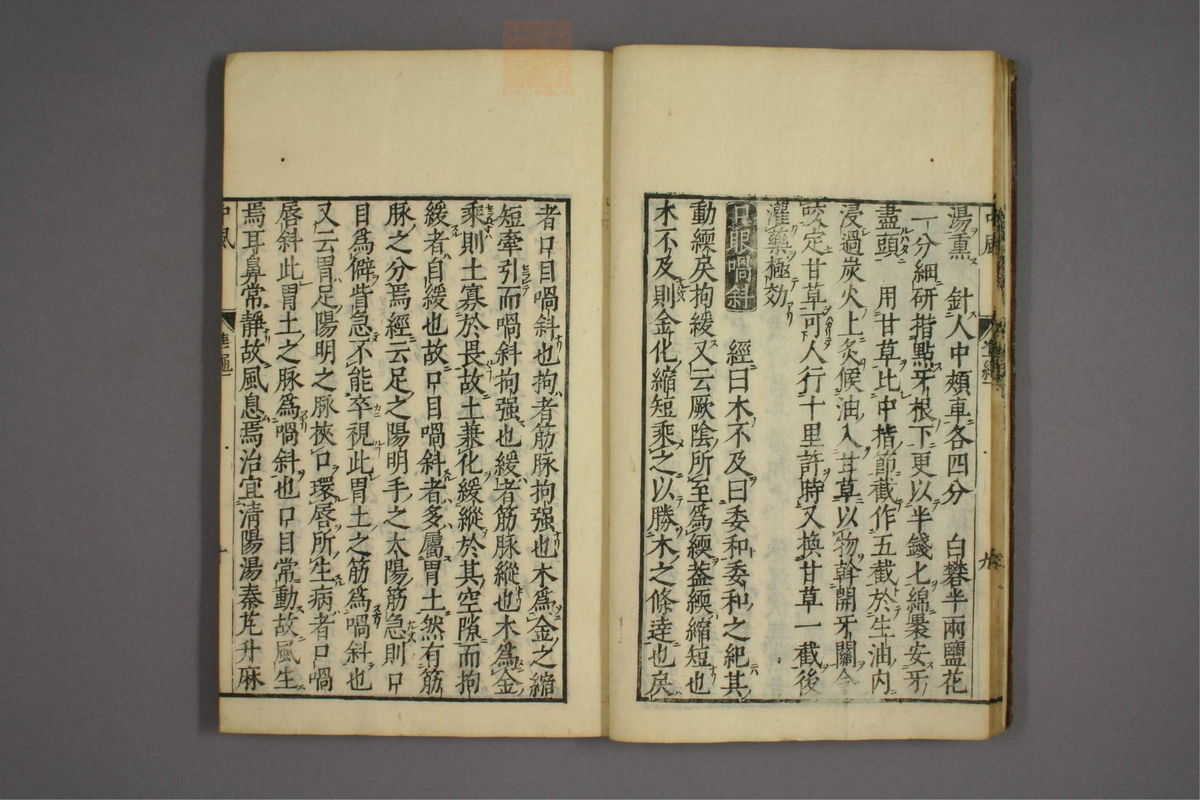 湯熏　針人中頰車各四分　白礬半兩鹽花
一分細研揩點牙根下更以半錢匕綿裹安牙
盡頭　用甘草比中指節截作五截於生油內
浸過炭火上炙候油入甘草以物斡開牙關令
咬定甘草可人行十里許時又換甘草一截後
灌藥極効
口眼喎斜　經曰木不及曰委和委和之紀其
動緛戾拘緩又云厥陰所至為緛蓋緛縮短也
木不及則金化縮短乘之以勝木之條達也戾
者口目喎斜也拘者筋脉拘强也木為金之縮
短牽引而喎斜拘强也緩者筋脉縱也木為金
乘則土寡於畏故土兼化緩縱於其空隙而拘
緩者自緩也故口目喎斜者多屬胃土然有筋
脉之分焉經云足之陽明手之太陽筋急則口
目為僻眥急不能卒視此胃土之筋為喎斜也
又云胃足陽明之脉挾口環唇所生病者口喎
唇斜此胃土之脉為喎斜也口目常動故風生
焉耳鼻常靜故風息焉治宜清陽湯秦艽升麻